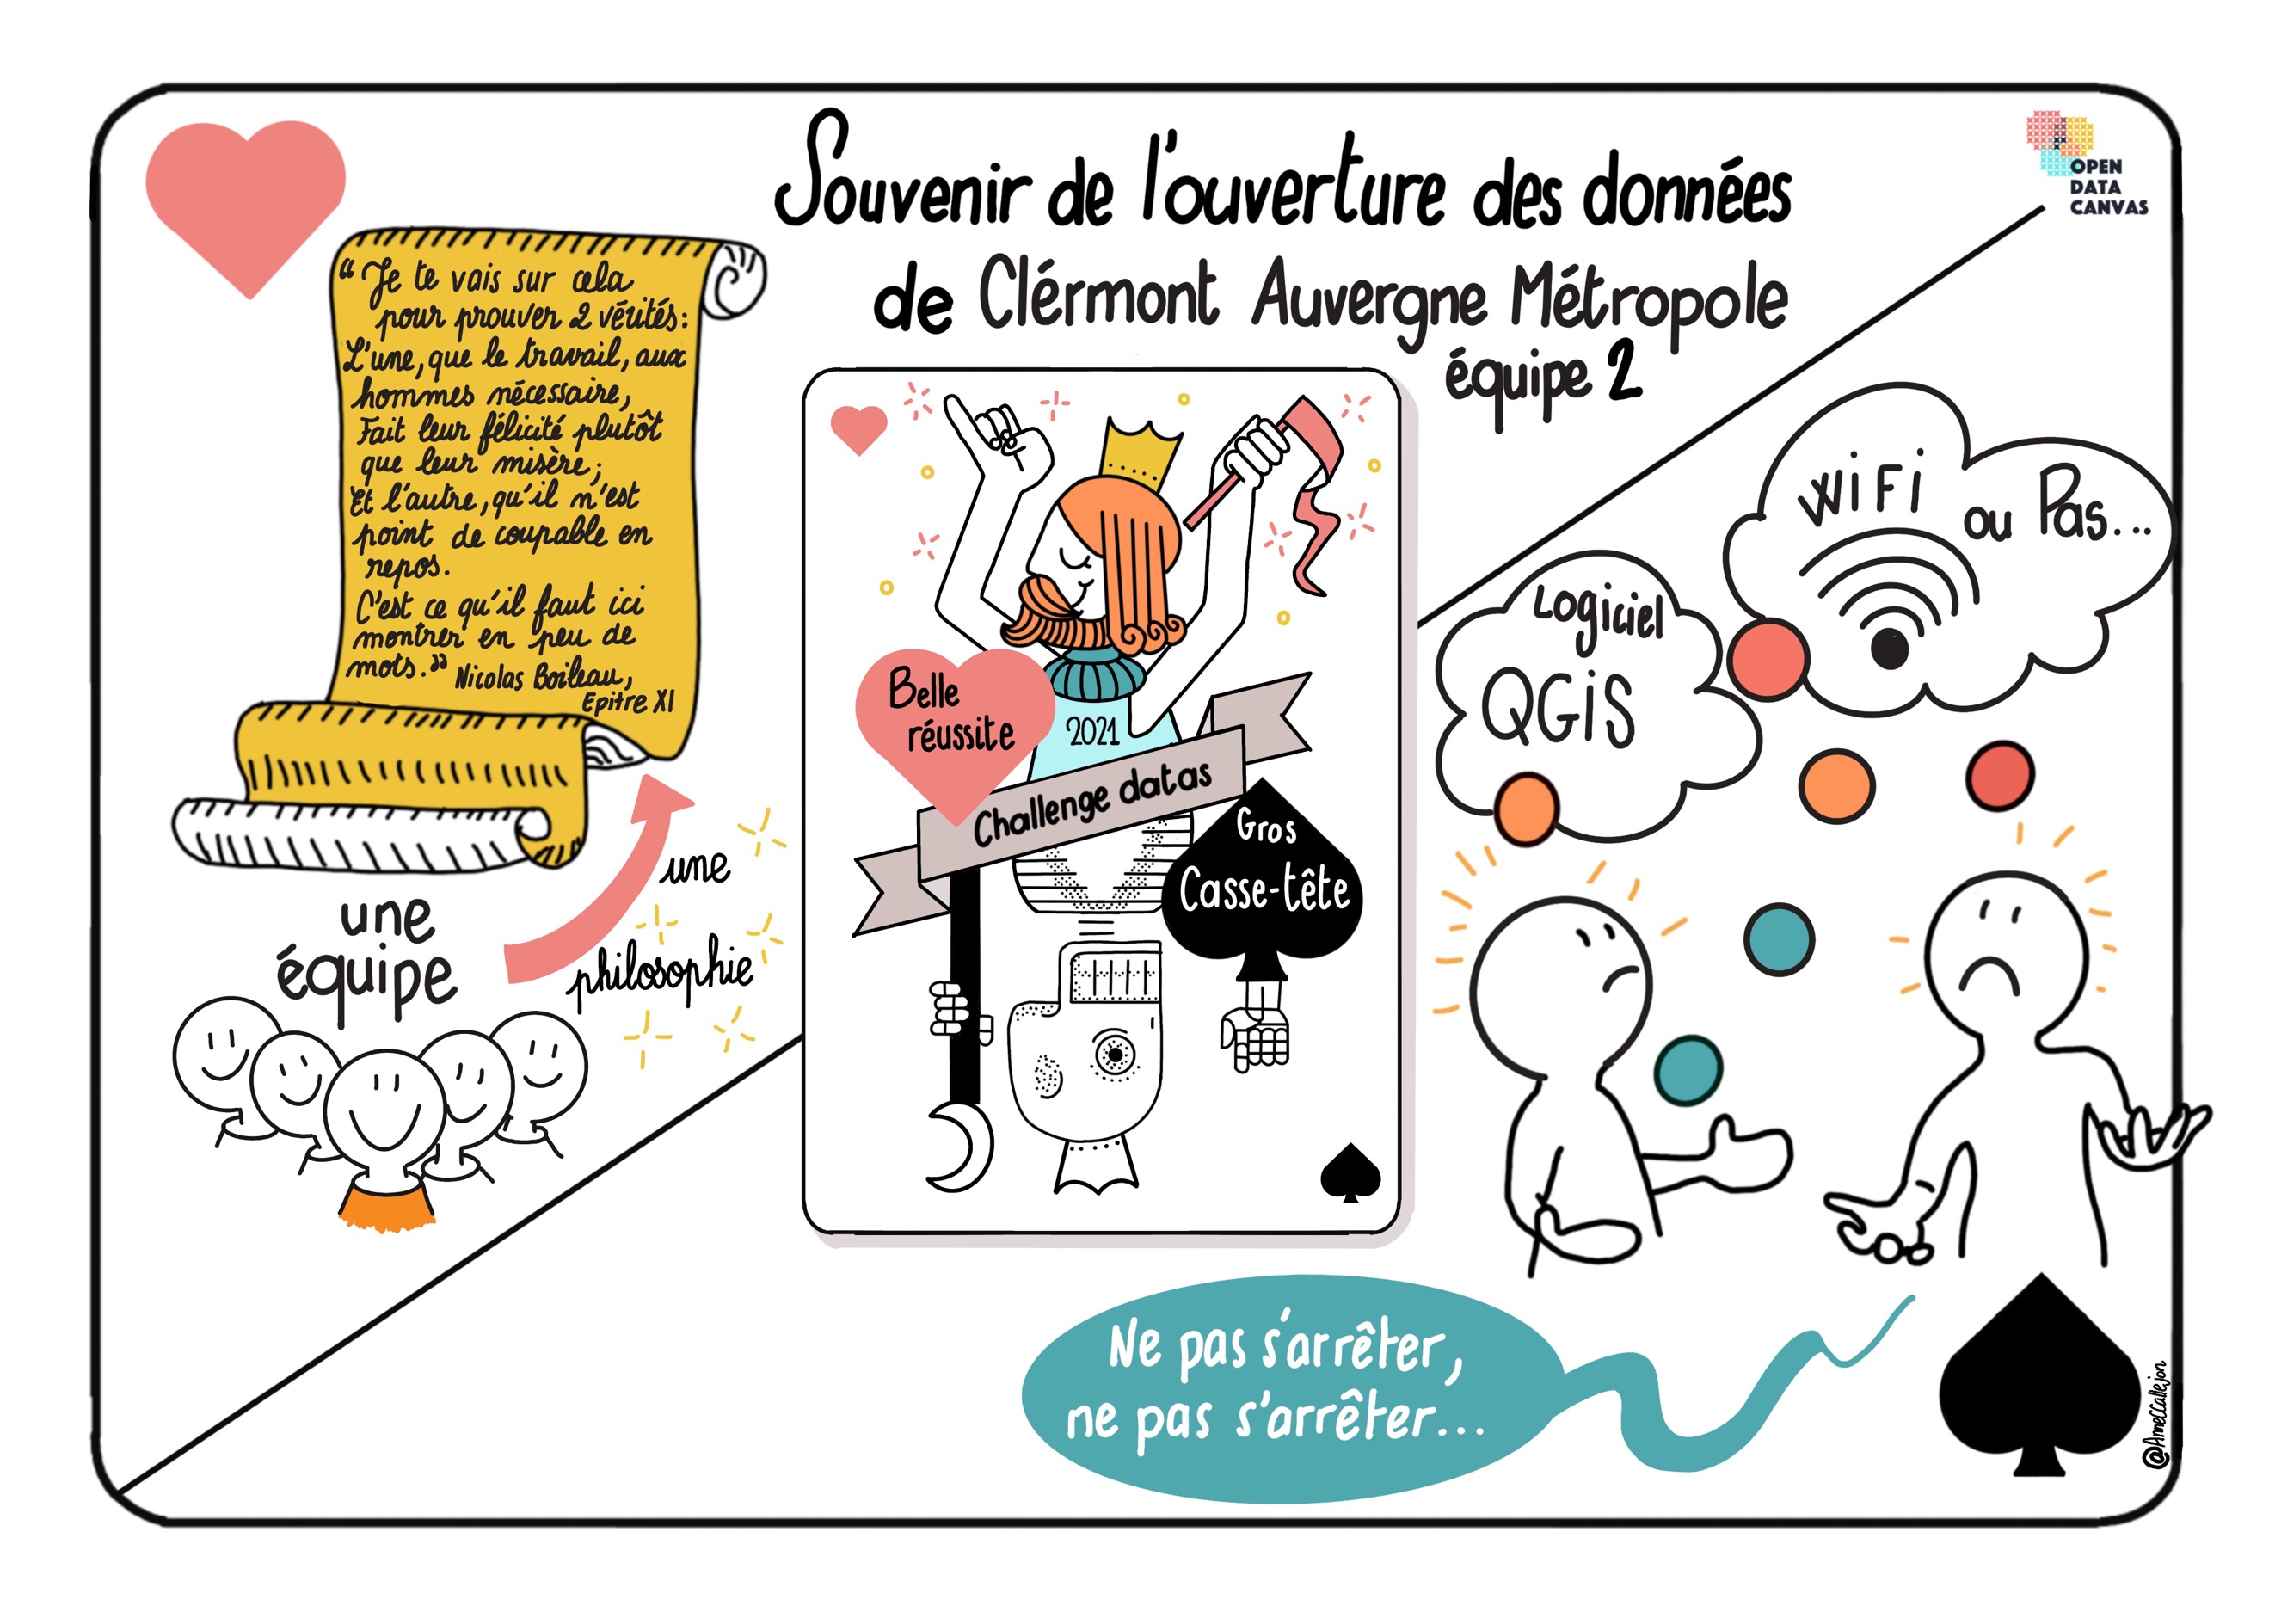 Souvenir de l'ouverture des données
de Clérmont Auvergne Métropole
équipe 2
OPEN
DATA
CANVAS
“Je te vais sur cela
pour prouver 2 vérités:
L'une, que le travail, aux
hommes nécessaire,
Fait leur félicité plutôt
que leur misère;
Et l'autre, qu'il n'est
point de coupable en
repos.
C'est ce qu'il faut ici
montrer en peu de
mots.”
Nicolas Boileau,
Epitre XI
une
équipe
une
philosophie
Belle
réussite
2021
Challenge datas
Gros
Casse-tête
Logiciel
QGiS
WiFi
ou Pas...
Ne pas s'arrêter,
ne pas s'arrêter...
@AnneCCallejon